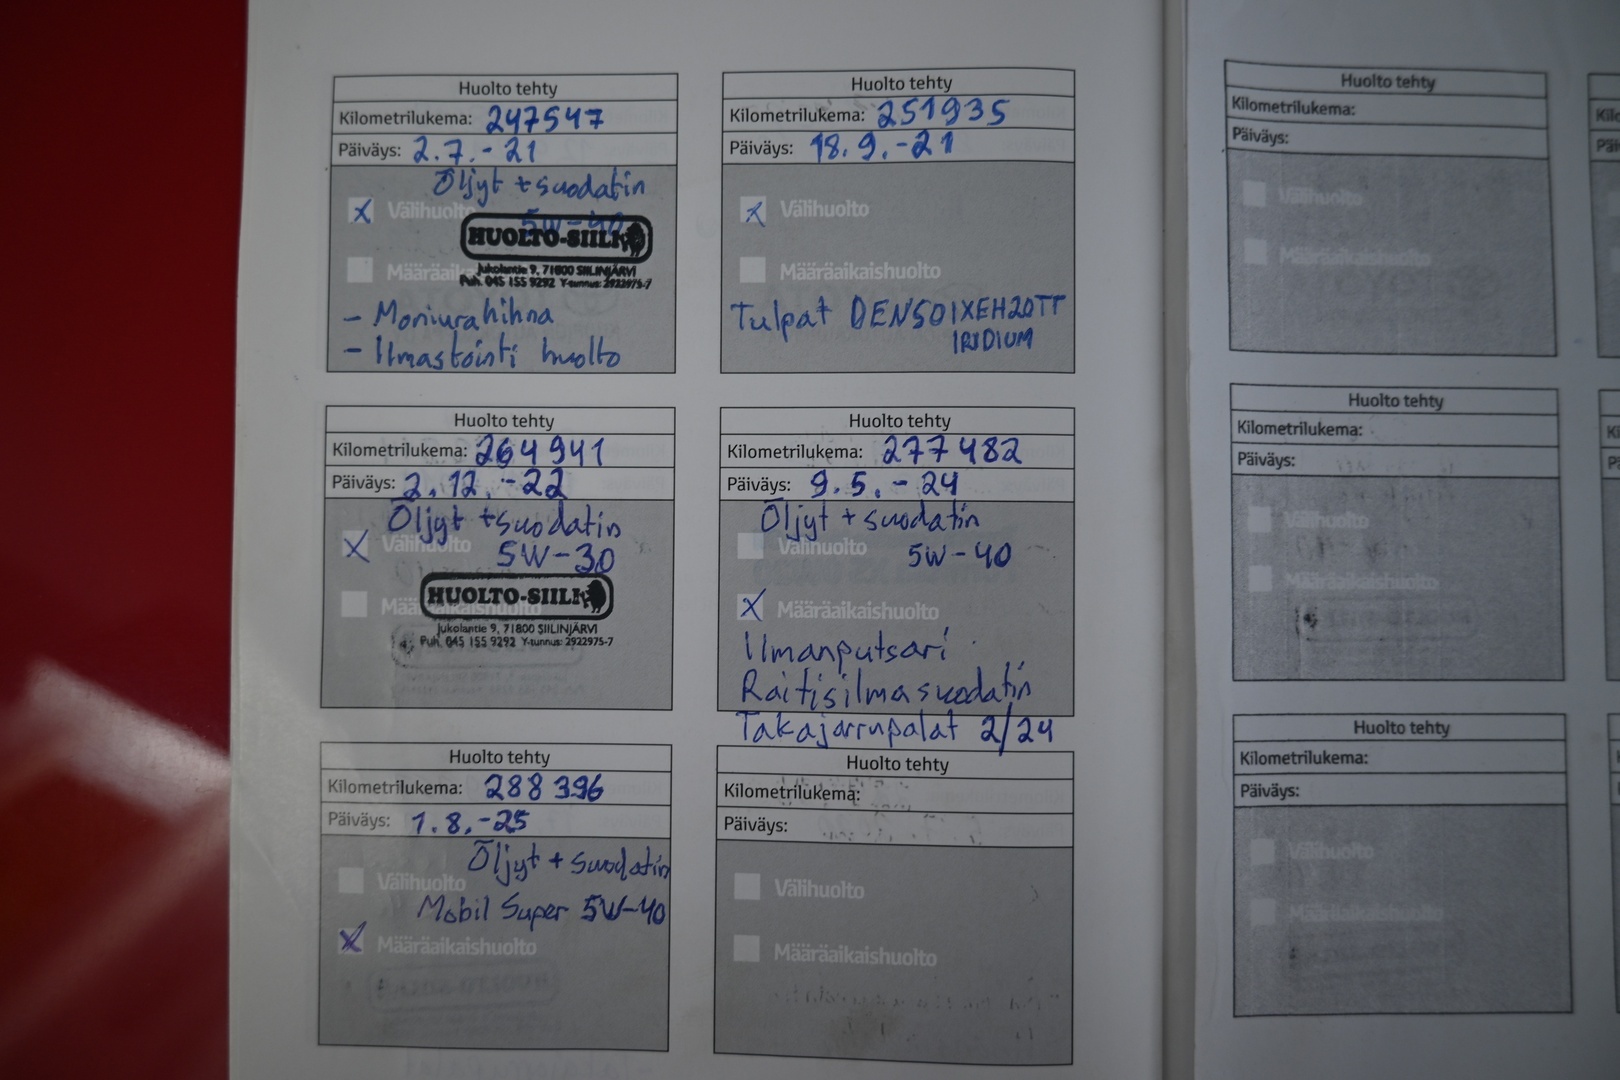 Huolto tehty
Kilometrilukema: 247547
Päiväys: 2.7.-21
Öljyt + suodatin
5W-40
Välihuolto
HUOLTO-SIILI
Jukolantie 9, 71800 SIILINJÄRVI
Puh. 045 155 9292 Y-tunnus: 2922975-7
- Moniurahihna
- Ilmastointi huolto
Huolto tehty
Kilometrilukema: 251935
Päiväys: 18.9.-21
Välihuolto
Määräaikaishuolto
Tulpat DENSO IXEH20TT
IRIDIUM
Huolto tehty
Kilometrilukema: 264941
Päiväys: 2.12.-22
Öljyt + suodatin
Välihuolto 5W-30
Määräaikaishuolto
HUOLTO-SIILI
Jukolantie 9, 71800 SIILINJÄRVI
Puh. 045 155 9292 Y-tunnus: 2922975-7
Huolto tehty
Kilometrilukema: 277482
Päiväys: 9.5.-24
Öljyt + suodatin
Välihuolto 5W-40
Määräaikaishuolto
Ilmanputsari
Raitisilmasuodatin
Takajarrupalat 2/24
Huolto tehty
Kilometrilukema: 288396
Päiväys: 1.8.-25
Öljyt + suodatin
Välihuolto
Mobil Super 5W-40
Määräaikaishuolto
Huolto tehty
Kilometrilukema:
Päiväys:
Välihuolto
Määräaikaishuolto
Huolto tehty
Kilometrilukema:
Päiväys:
Välihuolto
Määräaikaishuolto
Huolto tehty
Kilometrilukema:
Päiväys:
Välihuolto
Määräaikaishuolto
Huolto tehty
Kilometrilukema:
Päiväys:
Välihuolto
Määräaikaishuolto